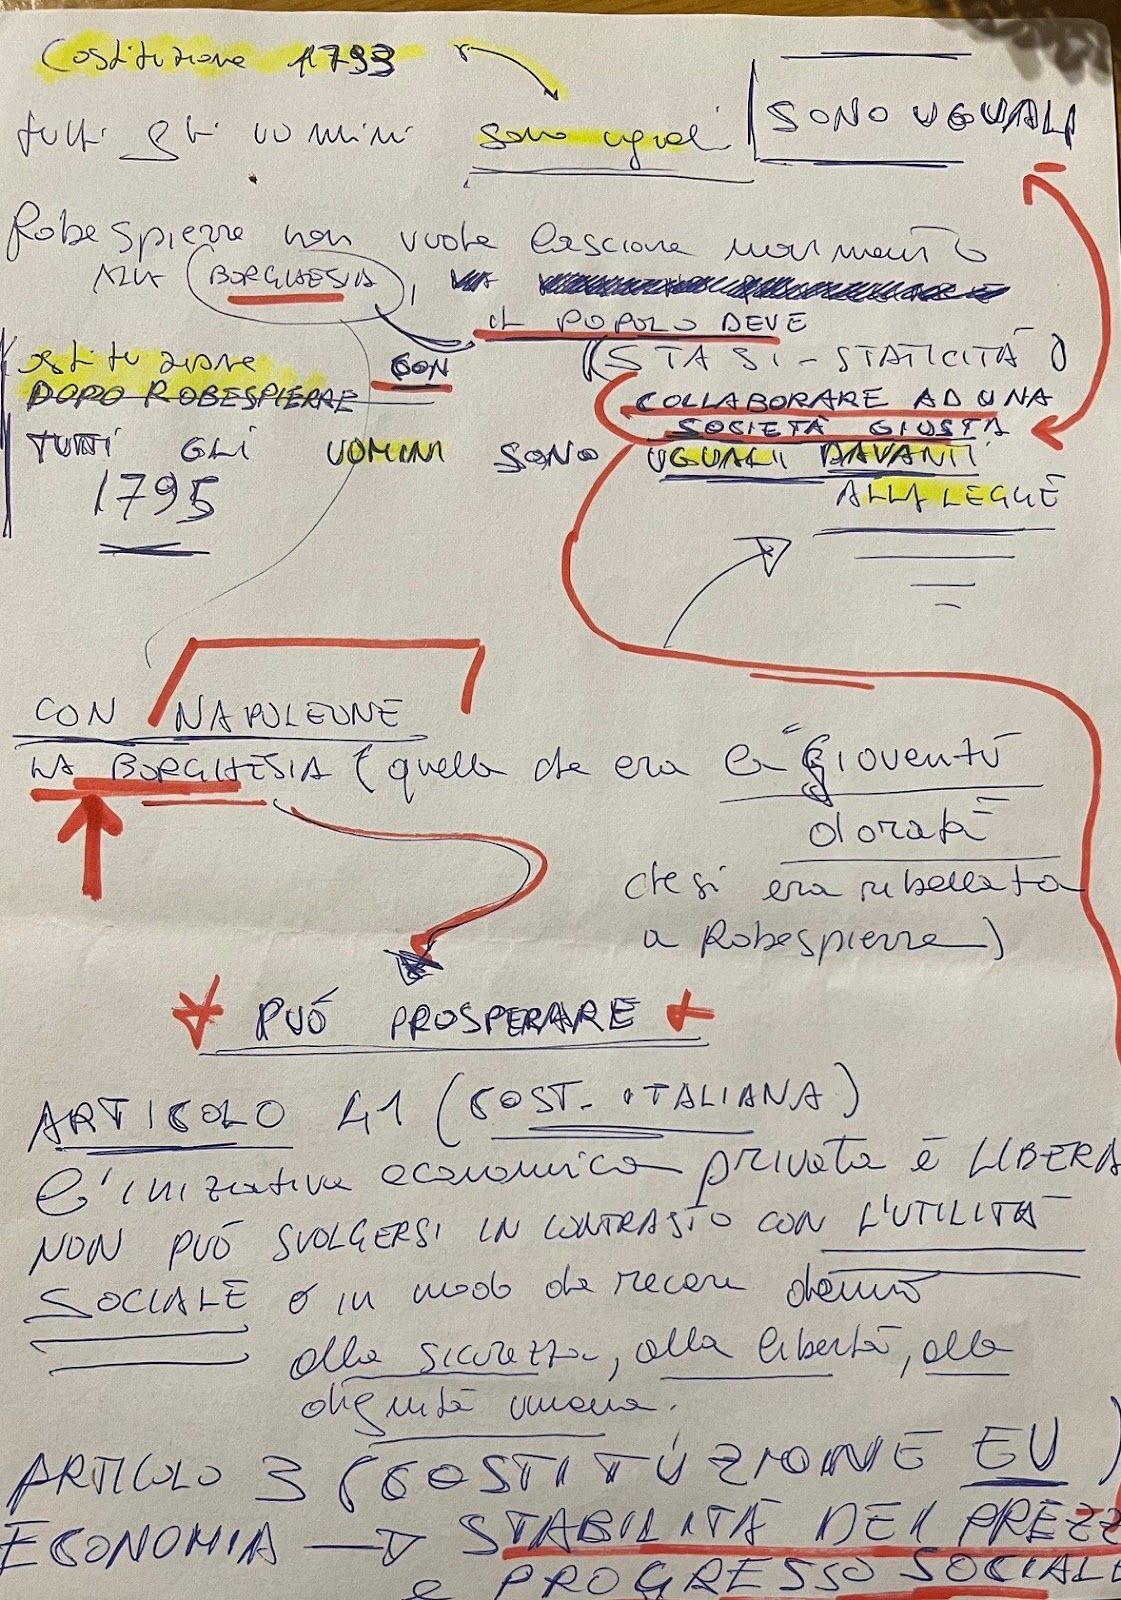 Costituzione 1793
tutti gli uomini sono uguali SONO UGUALI
Robespierre non vuole lasciare
ALLA BORGHESIA, MA
IL POPOLO DEVE
(STASI-STATICITÀ)
ostituzione CON
DOPO ROBESPIERRE
COLLABORARE AD UNA
SOCIETÀ GIUSTA
TUTTI GLI UOMINI SONO UGUALI DAVANTI
ALLA LEGGE
1795
CON NAPOLEONE
LA BORGHESIA (quella che era la "gioventù
dorata"
che si era ribellata
a Robespierre)
PUÓ PROSPERARE
ARTICOLO 41 (COST. ITALIANA)
l'iniziativa economica privata è LIBERA
NON PUÓ SVOLGERSI IN CONTRASTO CON L'UTILITÀ
SOCIALE o in modo da recare danno
alla sicurezza, alla libertà, alla
dignità umana.
ARTICOLO 3 (COSTITUZIONE EU)
ECONOMIA → STABILITÀ DEI PREZZ
e PROGRESSO SOCIALE